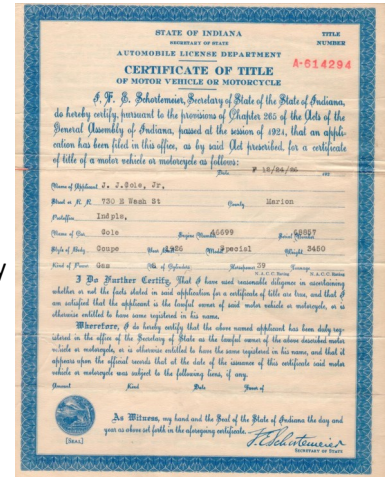 STATE OF INDIANA
SECRETARY OF STATE
TITLE NUMBER
AUTOMOBILE LICENSE DEPARTMENT
A-614294
CERTIFICATE OF TITLE
OF MOTOR VEHICLE OR MOTORCYCLE
I, F. E. Schortemeier, Secretary of State of the State of Indiana,
do hereby certify, pursuant to the provisions of Chapter 265 of the Acts of the
General Assembly of Indiana, passed at the session of 1921, that an appli-
cation has been filed in this office, as by said Act prescribed, for a certificate
of title of a motor vehicle or motorcycle as follows:
Date
Name of Applicant J. J.Cole, Jr,
Street or R. R. 730 E Wash St County Marion
Postoffice Indpls,
Name of Car Cole Engine Number Serial Number
Style of Body Coupe Special Weight 3450
Kind of Power Gas No. of Cylinders Horsepower 39 Tonnage
N. A. C. C. Rating N. A. C. C. Rating
I Do Further Certify, That I have used reasonable diligence in ascertaining
whether or not the facts stated in said application for a certificate of title are true, and that I
am satisfied that the applicant is the lawful owner of said motor vehicle or motorcycle, or is
otherwise entitled to have same registered in his name.
Wherefore, I do hereby certify that the above named applicant has been duly reg-
istered in the office of the Secretary of State as the lawful owner of the above described motor
vehicle or motorcycle, or is otherwise entitled to have the same registered in his name, and that it
appears upon the official records that at the date of the issuance of this certificate said motor
vehicle or motorcycle was subject to the following liens, if any.
Amount Kind Date Favor of
As Witness, my hand and the Seal of the State of Indiana the day and
year as above set forth in the aforegoing certificate.
[SEAL]
F. E. Schortemeier
SECRETARY OF STATE
y